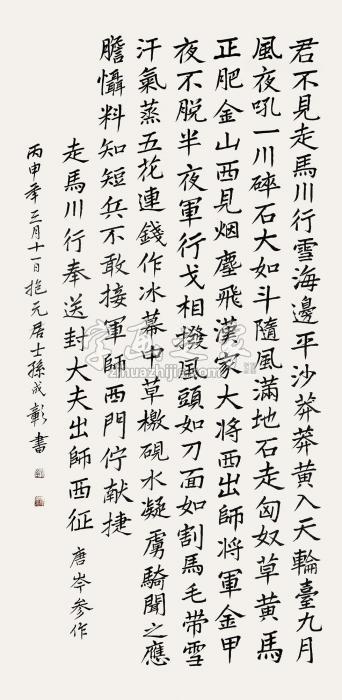 君不見走馬川行雪海邊平沙莽莽黃入天輪臺九月
風夜吼一川碎石大如斗隨風滿地石走匈奴草黃馬
正肥金山西見烟塵飛漢家大将西出師將軍金甲
夜不脱半夜軍行戈相撥風頭如刀面如割馬毛带雪
汗氣蒸五花連錢作冰幕中草檄硯水凝虜騎聞之應
膽懾料知短兵不敢接軍師西門佇献捷
走馬川行奉送封大夫出師西征 唐岑参作
丙申年三月十一日抱元居士孫成彰書
字画之家
zihuazhijia.com